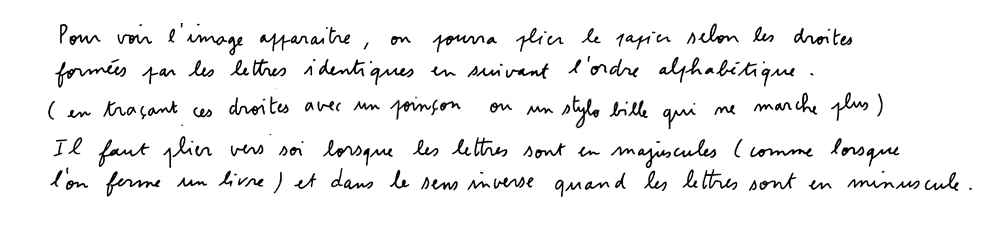 Pour voir l'image apparaitre, on pourra plier le papier selon les droites
formées par les lettres identiques en suivant l'ordre alphabétique.
(en traçant ces droites avec un poinçon ou un stylo bille qui ne marche plus)
Il faut plier vers soi lorsque les lettres sont en majuscules (comme lorsque
l'on ferme un livre) et dans le sens inverse quand les lettres sont en minuscule.